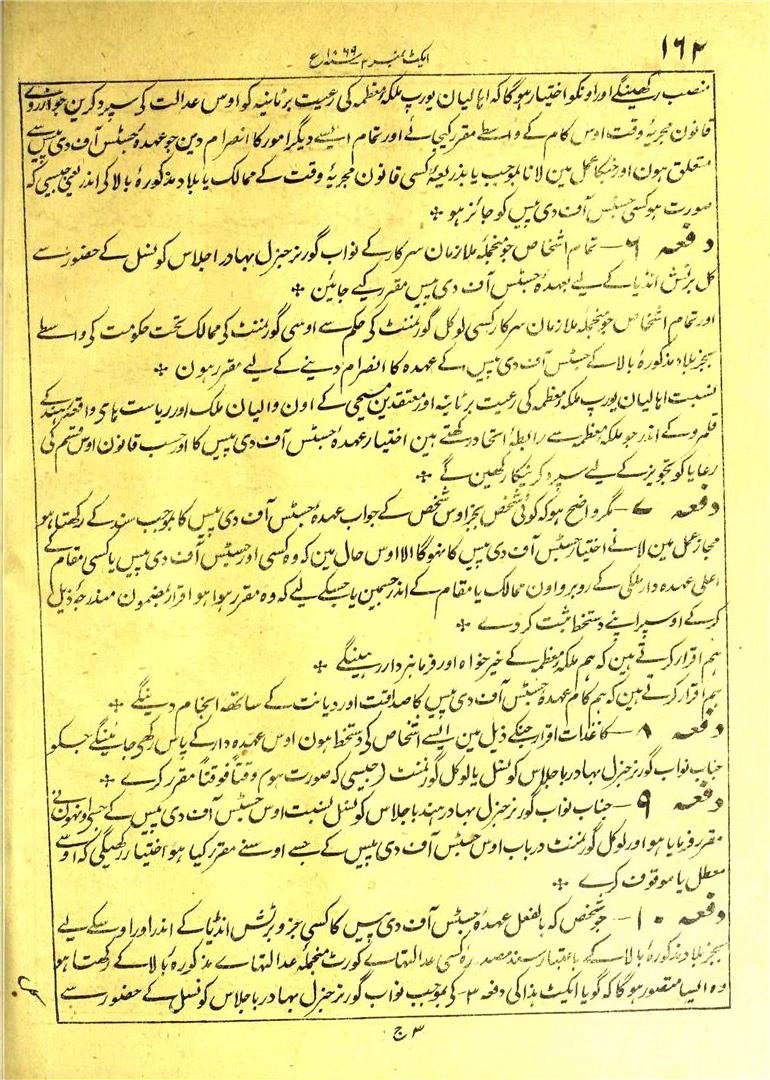 ۱۶۲
ایکٹ نمبر ۲ سنہ ۱۸۶۹ ع
منصب رکھینگے اور اونکو اختیار ہوگا کہ اہالیان یورپ ملکہ معظمہ کی رعیت برٹانیہ کو اوس عدالت کی سپرد کرین جو ازروے
قانون مجریۂ وقت اوس کام کے واسطے مقرر کیجائے اور تمام ایسے دیگر امور کا انصرام دین جو عہدۂ جسٹس آف دی پیس سے
متعلق ہون اور جنکا عمل مین لانا بموجب یا بذریعۂ کسی قانون مجریۂ وقت کے ممالک یا بلاد مذکورۂ بالا کی اندر یعنی جیسی کہ
صورت ہو کسی جسٹس آف دی پیس کو جائز ہو ⁘
دفعہ ۶ ــ تمام اشخاص جو منجملۂ ملازمان سرکار کے نواب گورنر جنرل بہادر اجلاس کونسل کے حضور سے
کل برٹش انڈیا کے لیے بعہدۂ جسٹس آف دی پیس مقرر کیے جائین ⁘
اور تمام اشخاص جو منجملۂ ملازمان سرکار کسی لوکل گورنمنٹ کی حکم سے اوسی گورنمنٹ کی ممالک تحت حکومت کی واسطے
بجز بلاد مذکورۂ بالا کے جسٹس آف دی پیس کے عہدہ کا انصرام دینے کے لیے مقرر ہون ⁘
بنسبت اہالیان یورپ ملکہ معظمہ کی رعیت برٹانیہ اور معتقدین مسیحی کے اون والیان ملک اور ریاست ہای واقعۂ ہند کے
قلمرو کے اندر جو ملکہ معظمہ سے رابطۂ اتحاد رکھتے ہین اختیار عہدۂ جسٹس آف دی پیس کا اور حسب قانون اوس قسم کی
رعایا کو تجویز کے لیے سپرد کرنیکا رکھین گے ⁘
دفعہ ۷ ــ مگر واضح ہو کہ کوئی شخص بجز اوس شخص کے جو اب عہدۂ جسٹس آف دی پیس کا بموجب سند کے رکھتا ہو
مجاز عمل مین لانے اختیار جسٹس آف دی پیس کا نہوگا الا اوس حال مین کہ وہ کسی اور جسٹس آف دی پیس یا کسی مقام کے
اعلی عہدہ دار ملکی کے روبرو اون ممالک یا مقام کے اندر جسمین یا جسکے لیے کہ وہ مقرر ہوا ہو اقرار بمضمون مندرجۂ ذیل
کرکے اوسپر اپنے دستخط ثبت کردے ⁘
ہم اقرار کرتے ہین کہ ہم ملکہ معظمہ کے خیرخواہ اور فرمانبردار رہینگے ⁘
ہم اقرار کرتے ہین کہ ہم کام عہدۂ جسٹس آف دی پیس کا صداقت اور دیانت کے ساتھہ انجام دینگے ⁘
دفعہ ۸ ــ کاغذات اقرار جنکے ذیل مین ایسے اشخاص کی دستخط ہون اوس عہدہ دار کے پاس رکھی جائینگے جسکو
جناب نواب گورنر جنرل بہادر باجلاس کونسل یا لوکل گورنمنٹ (جیسی کہ صورت ہو) وقتاً فوقتاً مقرر کرے ⁘
دفعہ ۹ ــ جناب نواب گورنر جنرل بہادر ہند باجلاس کونسل بنسبت اوس جسٹس آف دی پیس کے جسے اونھون نے
مقرر فرمایا ہو اور لوکل گورنمنٹ درباب اوس جسٹس آف دی پیس کے جسے اوسنے مقرر کیا ہو اختیار رکھیگی کہ اوسے
معطل یا موقوف کرے ⁘
دفعہ ۱۰ ــ جو شخص کہ بالفعل عہدۂ جسٹس آف دی پیس کا کسی جزو برٹش انڈیا کے اندر اور اوسکے لیے
بجز بلاد مذکورۂ بالا کے باعتبار سند مصدرۂ کسی عدالتہاے کورٹ منجملۂ عدالتہاے مذکورۂ بالا کے رکھتا ہو
وہ ایسا متصور ہوگا کہ گویا ایکٹ ہذا کی دفعہ ۳ کی بموجب نواب گورنر جنرل بہادر باجلاس کونسل کے حضور سے
۳ ج